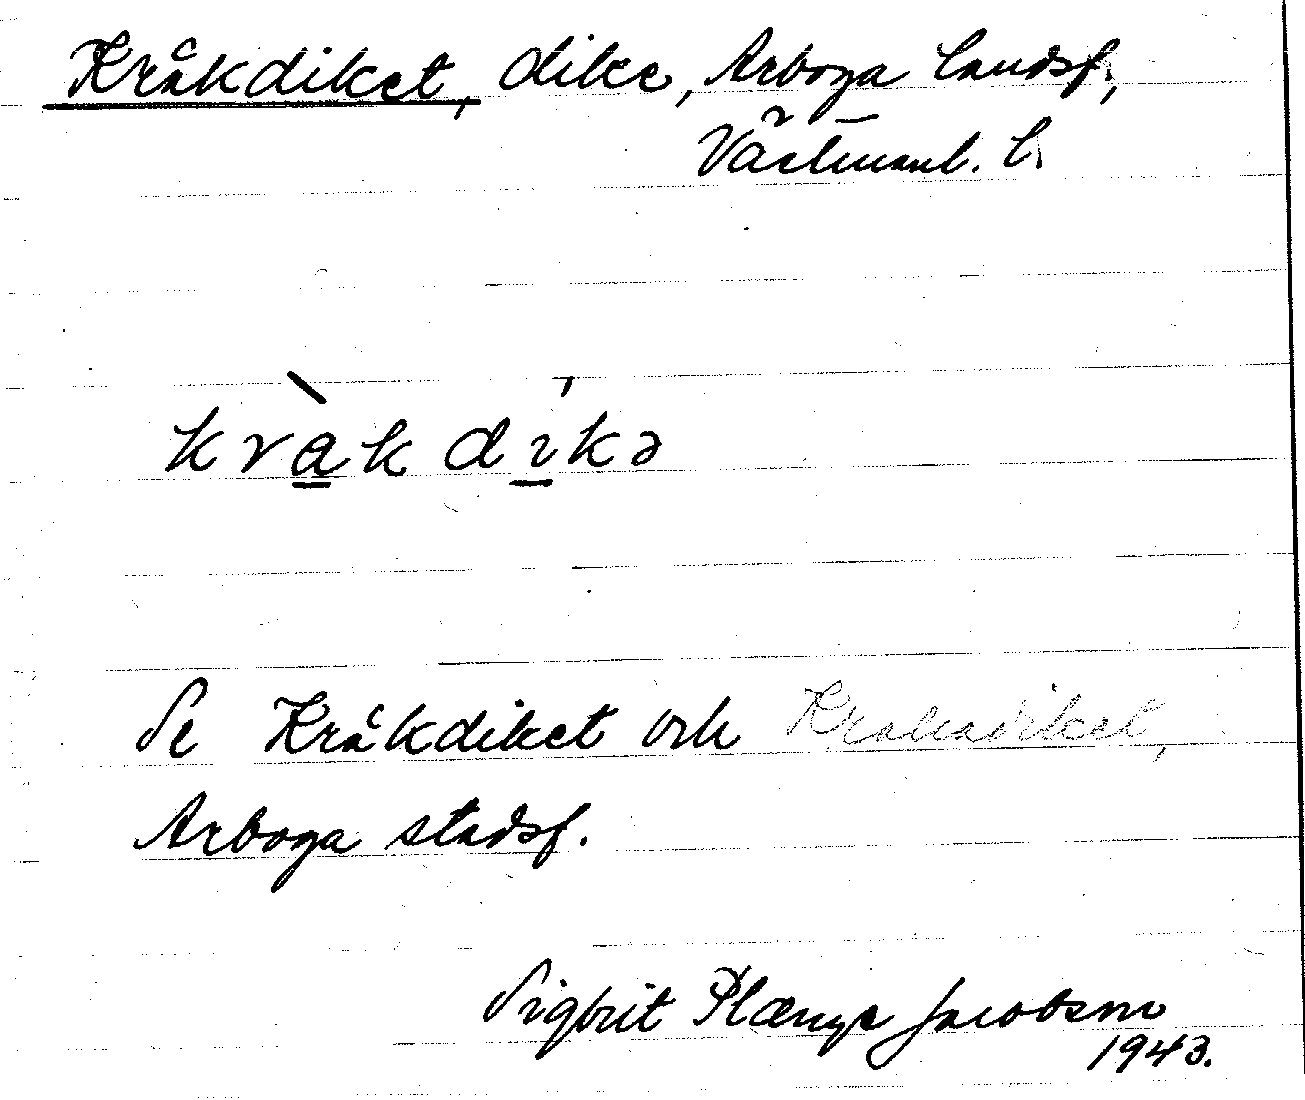 Kråkdiket, dike, Arboga landsf.,
Västmanl. l.
kràkdíkə
Se Kråkdiket och Krakadiket,
Arboga stadsf.
Sigbrit Plænge Jacobson
1943.